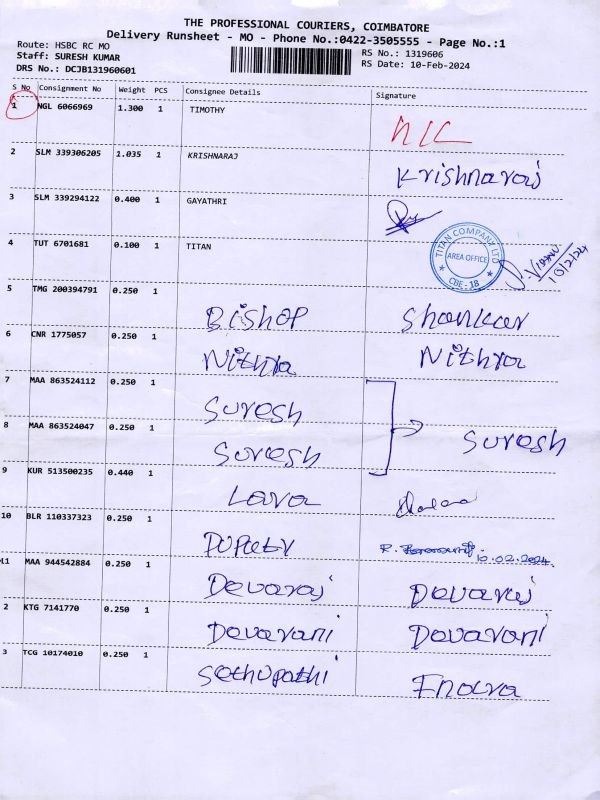 THE PROFESSIONAL COURIERS, COIMBATORE
Delivery Runsheet - MO - Phone No.:0422-3505555 - Page No.:1
Route: HSBC RC MO
Staff: SURESH KUMAR
DRS No.: DCJB131960601
RS No.: 1319606
RS Date: 10-Feb-2024
S No Consignment No Weight PCS Consignee Details Signature
1 NGL 6066969 1.300 1 TIMOTHY
2 SLM 339306205 1.035 1 KRISHNARAJ Krishnaraj
3 SLM 339294122 0.400 1 GAYATHRI
4 TUT 6701681 0.100 1 TITAN
TITAN COMPANY LTD
AREA OFFICE
CBE-18
10/2/24
5 TMG 200394791 0.250 1 Bishop Shankar
6 CNR 1775057 0.250 1 Nithya Nithya
7 MAA 863524112 0.250 1 Suresh
8 MAA 863524047 0.250 1 Suresh Suresh
9 KUR 513500235 0.440 1 Lava
10 BLR 110337323 0.250 1 R. 10.02.2024
11 MAA 944542884 0.250 1 Devaraj Devaraj
2 KTG 7141770 0.250 1 Devarani Devarani
3 TCG 10174010 0.250 1 Sethupathi